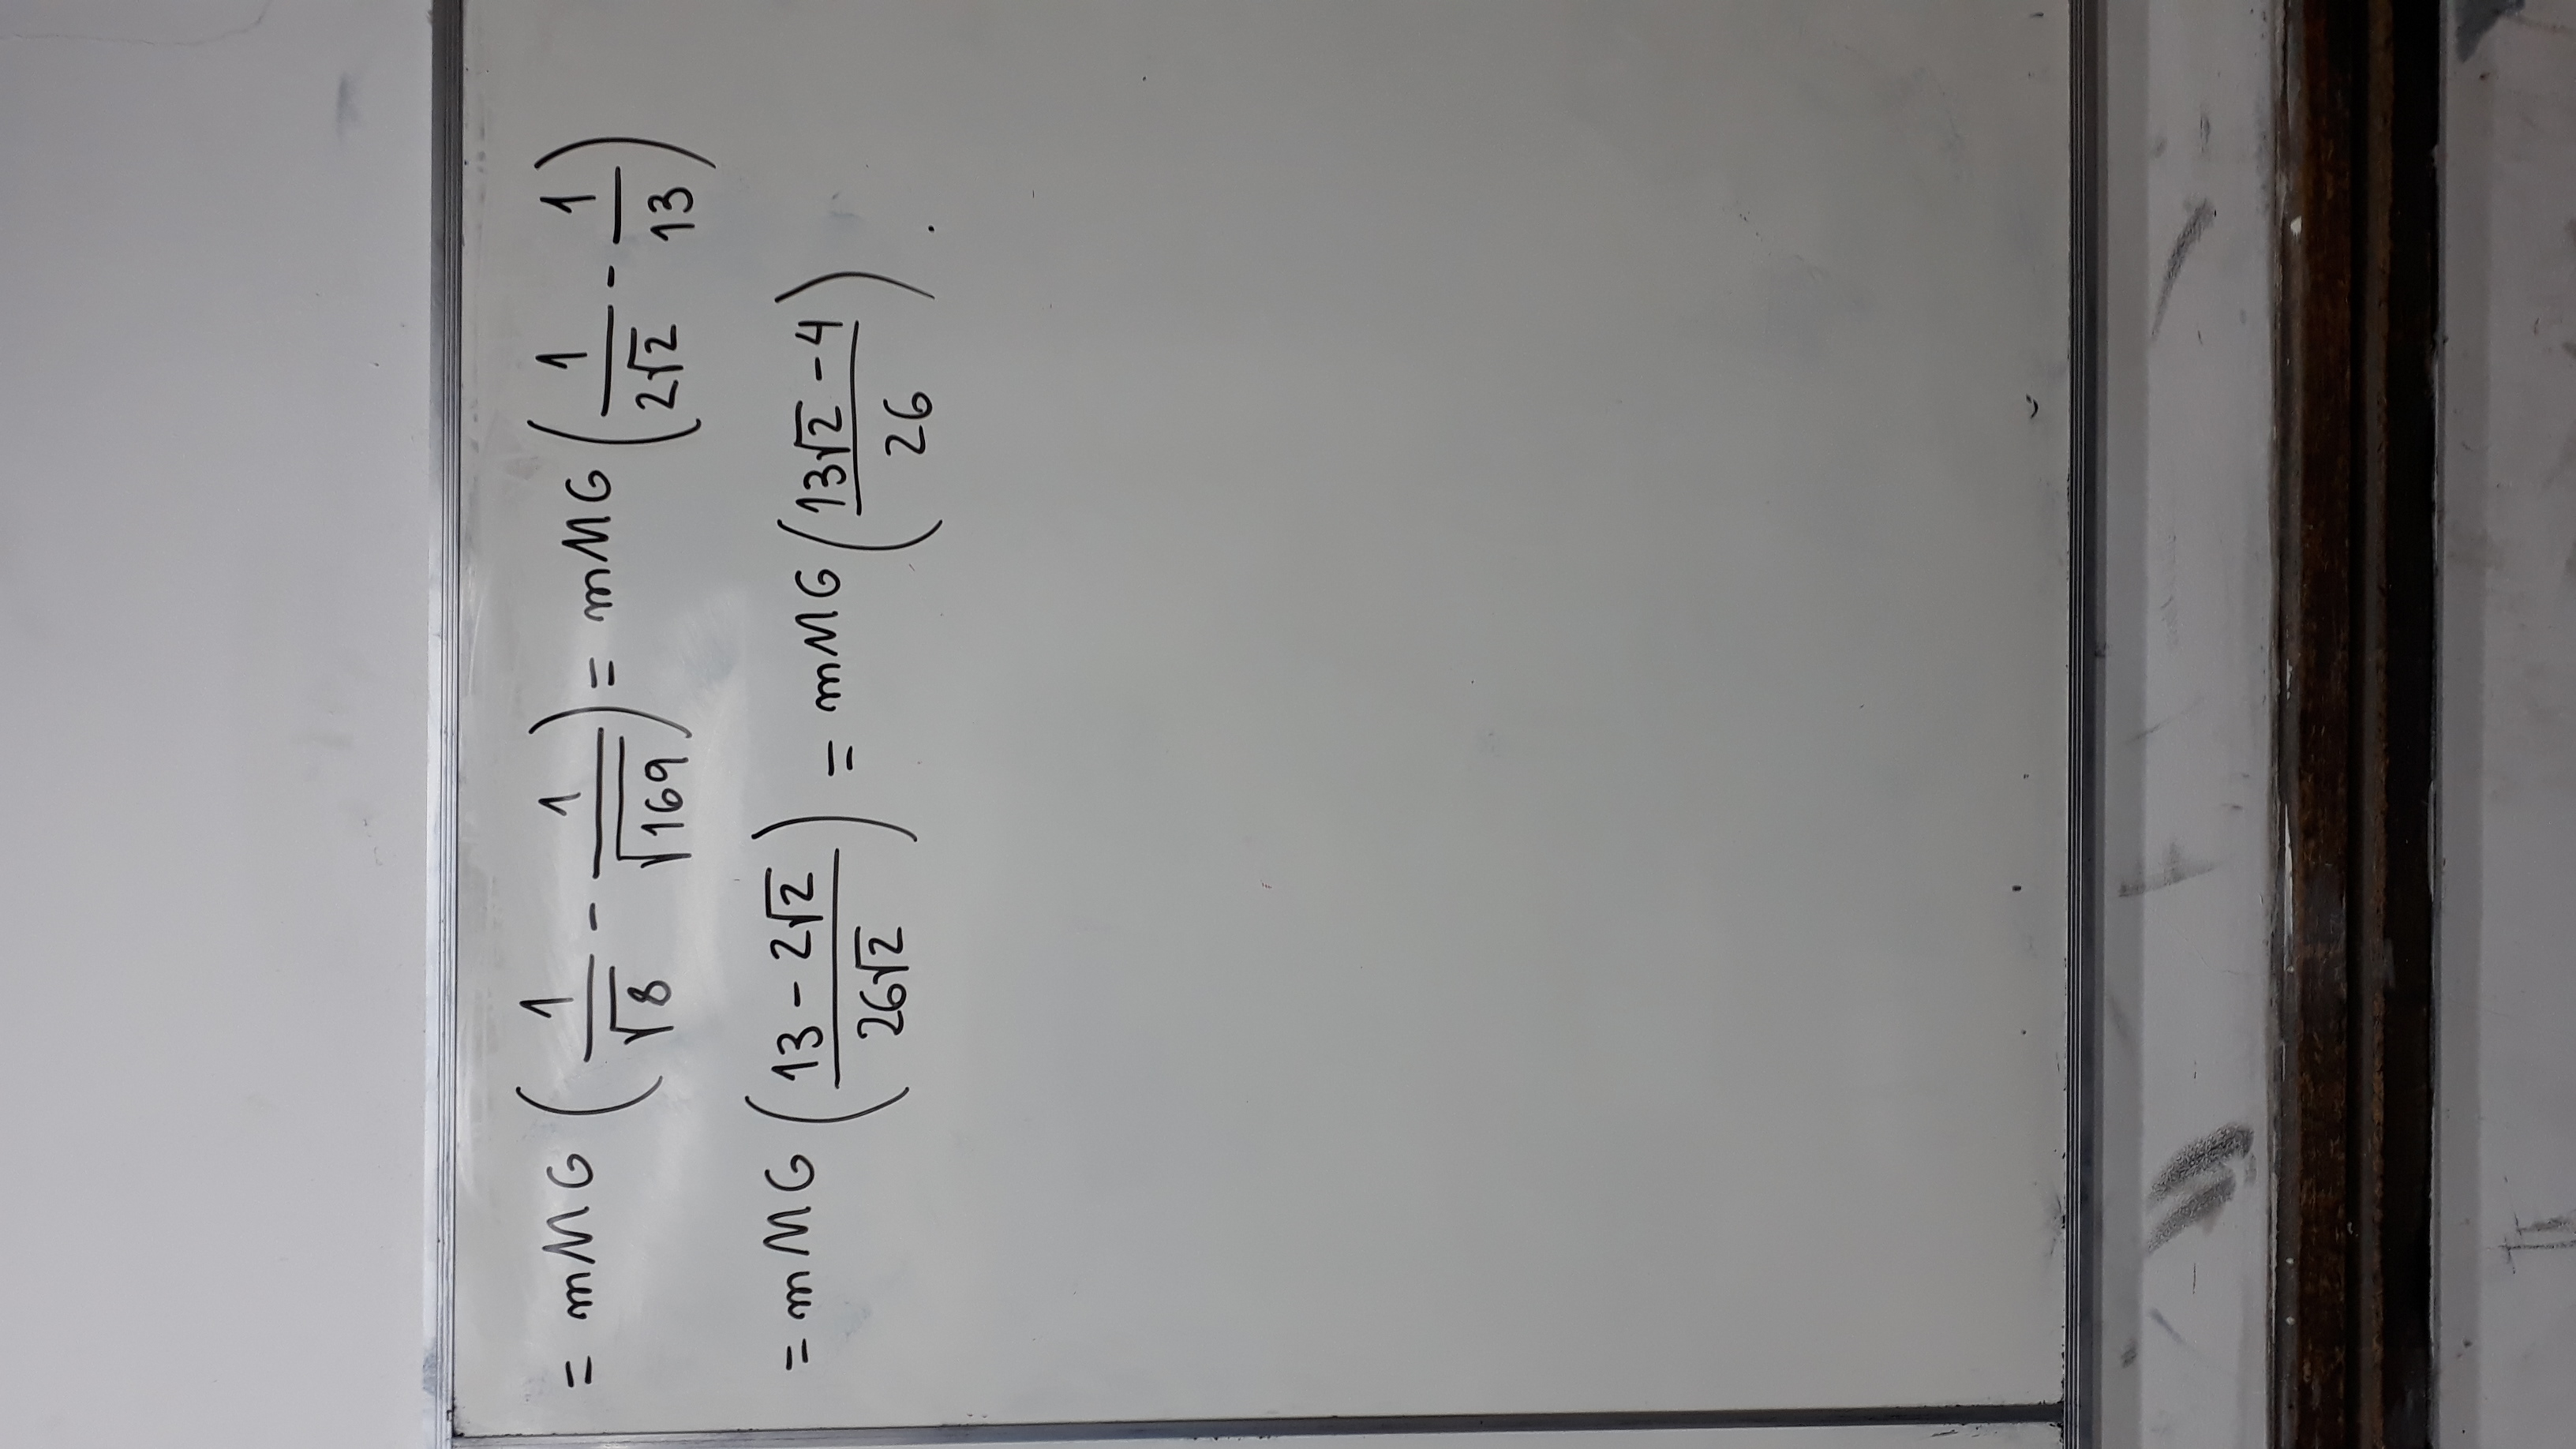 = mMG ( 1/√8 - 1/√169 ) = mMG ( 1/2√2 - 1/13 )
= mMG ( 13 - 2√2 / 26√2 ) = mMG ( 13√2 - 4 / 26 ) .